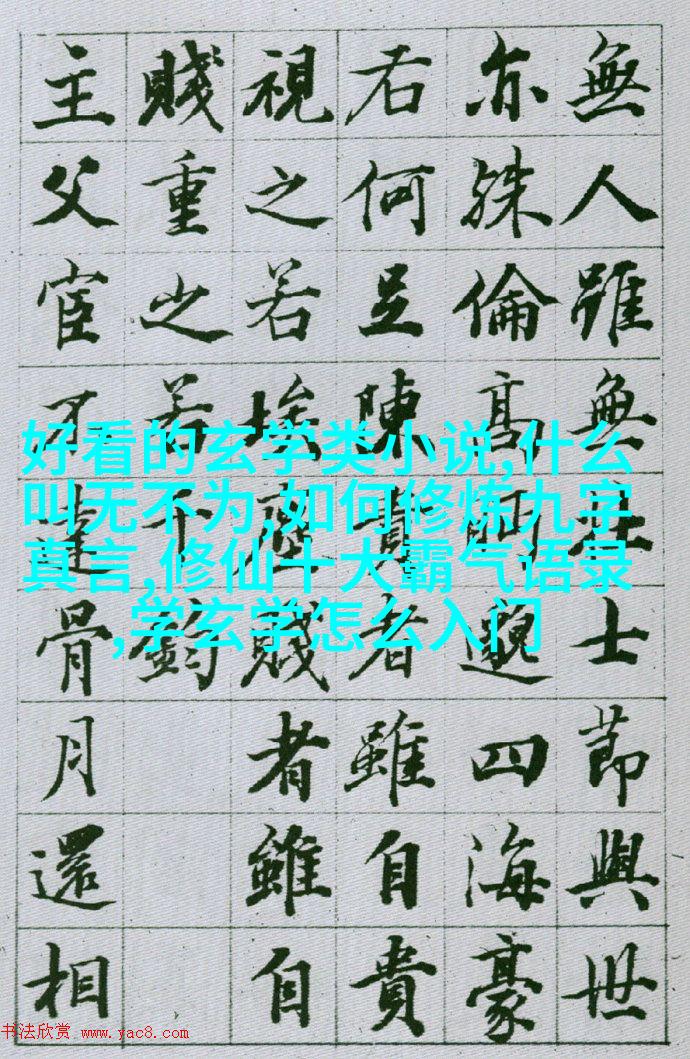 無人雖無壯士節與世
亦殊倫高眄邈四海豪
右何足陳貴者雖自貴
視之若埃塵賤者雖自
賤重之若千鈞
主父宦不達骨月還相
好看的玄学类小说,什么
叫无不为,如何修炼九字
真言,修仙十大霸气语录
,学玄学怎么入门
书法欣赏 www.yac8.com